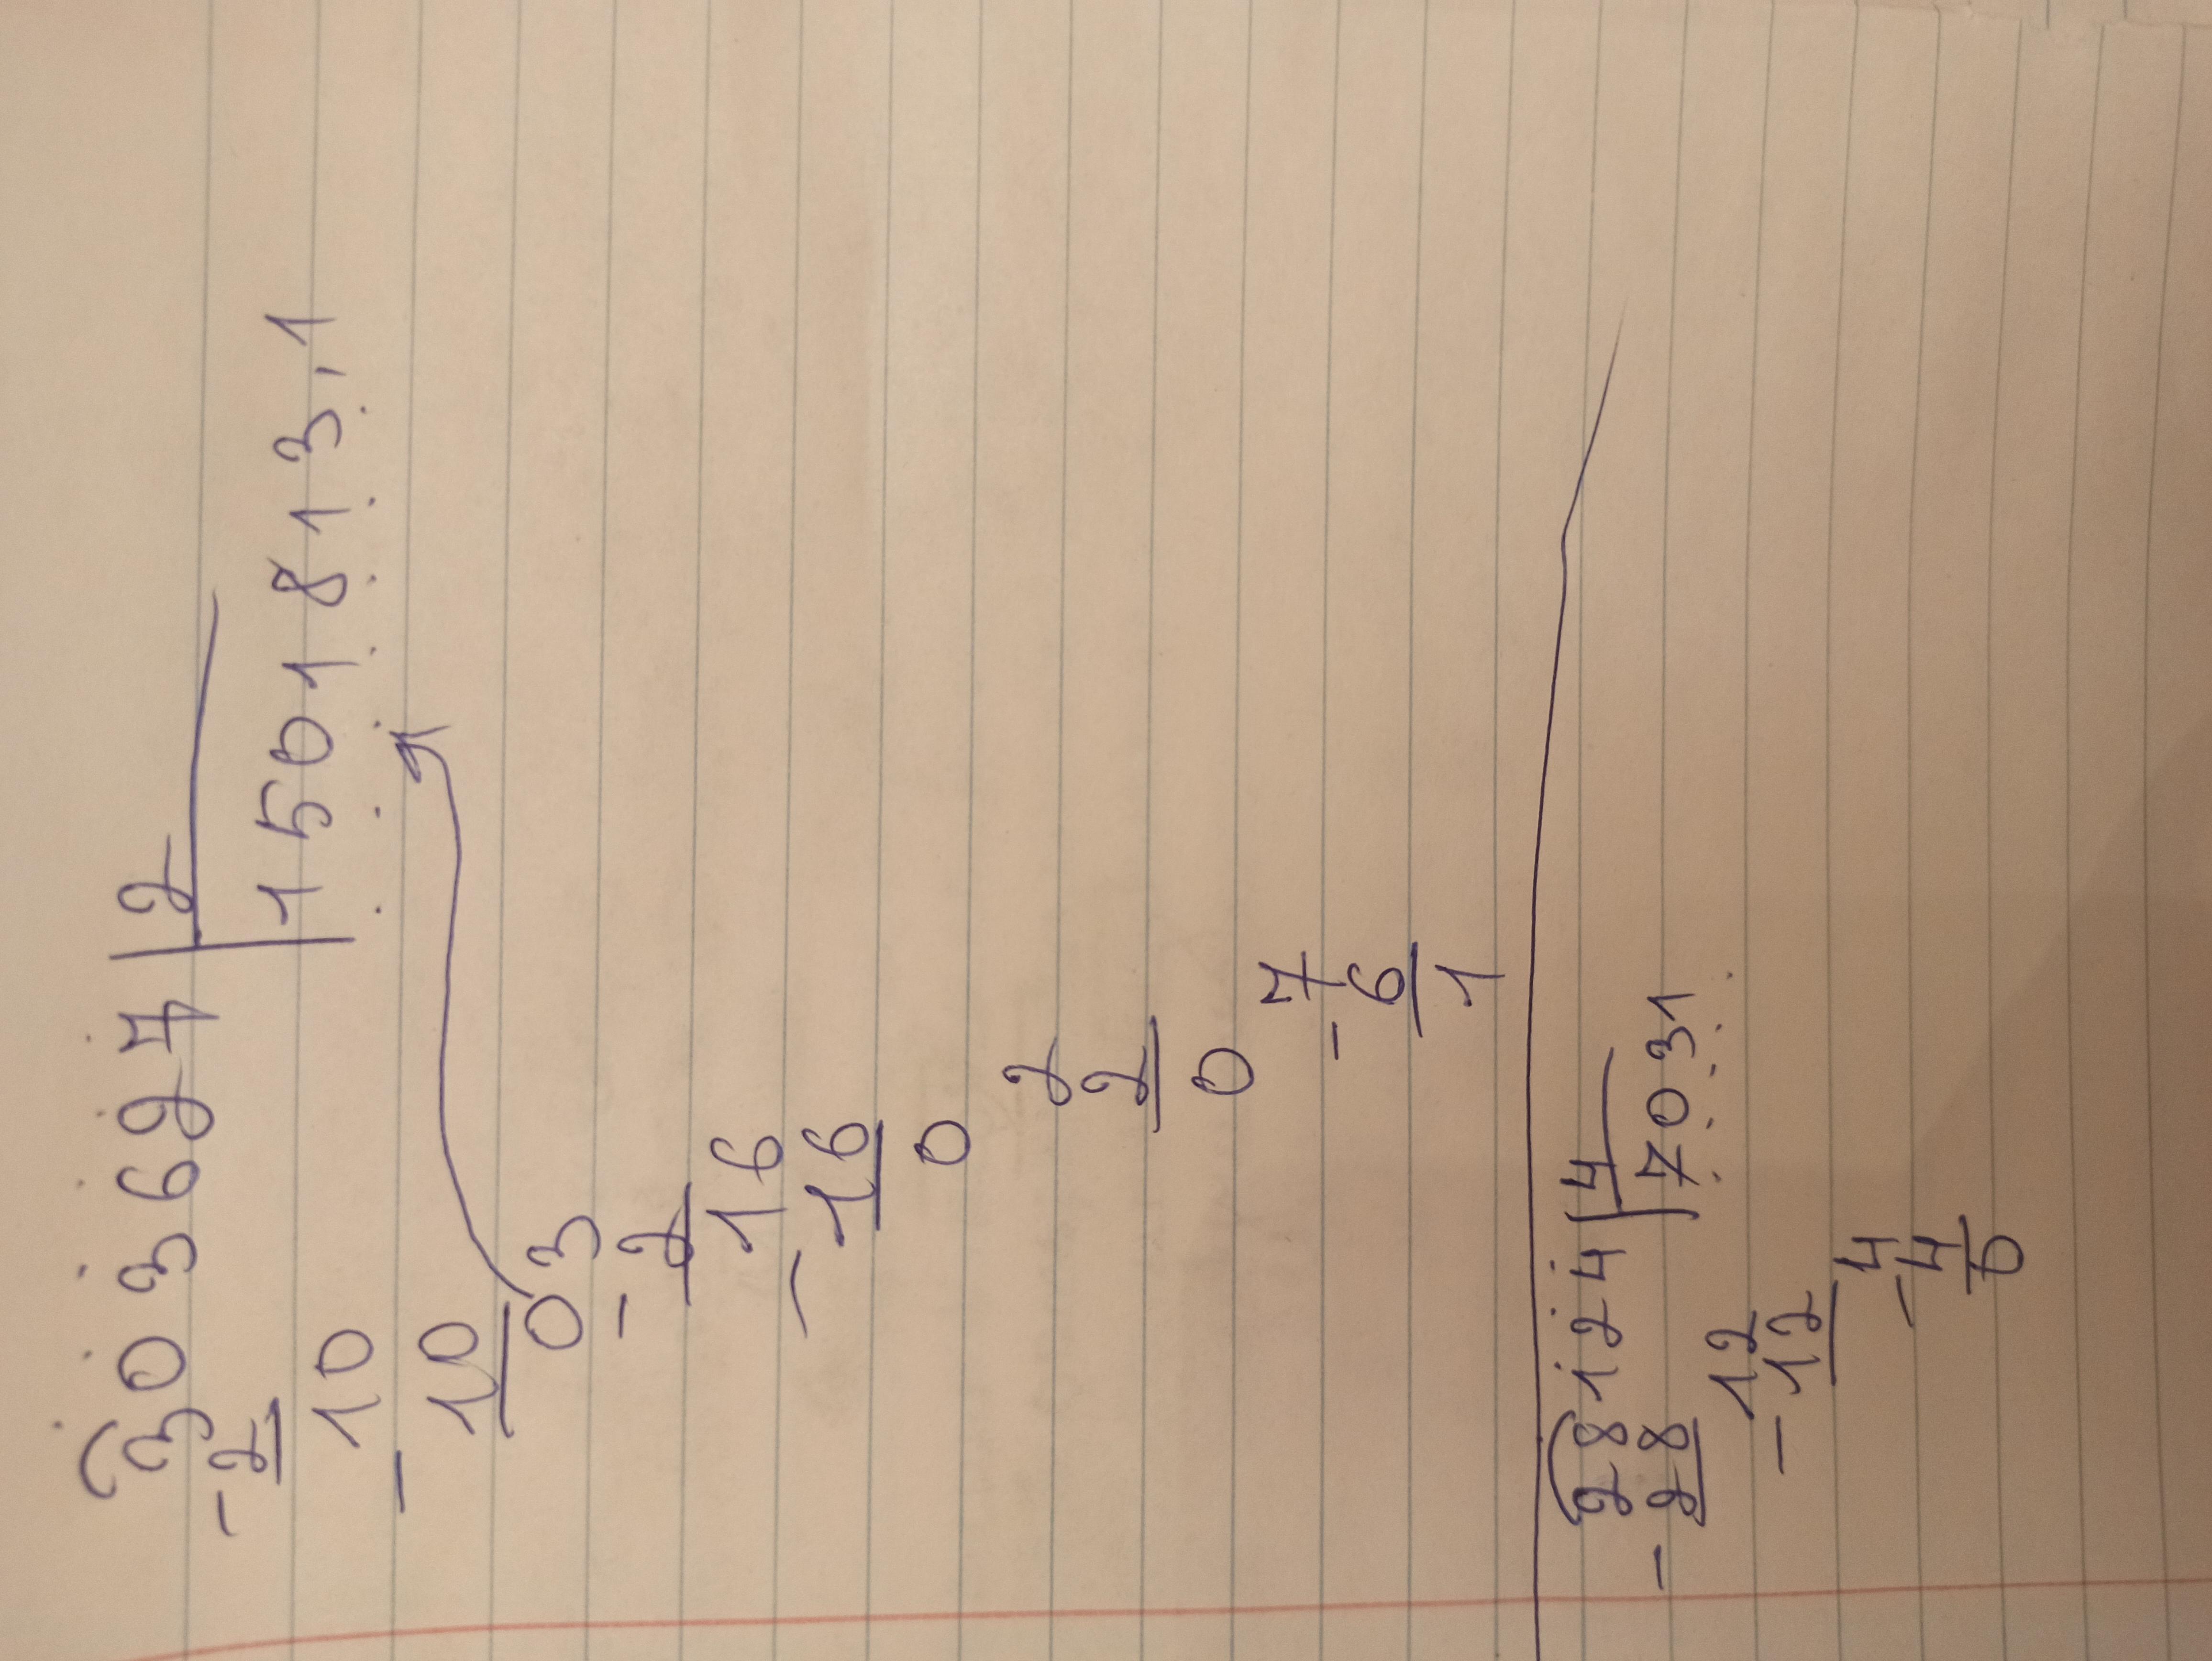 303627 | 2
- 2
1501813,1
10
- 10
03
- 2
16
- 16
0
2
2
0
7
- 6
1
28124 | 4
- 28
7031
12
- 12
4
- 4
0